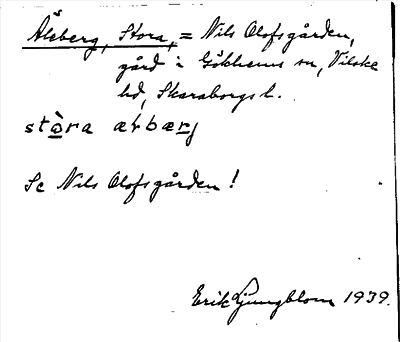 Ålsberg, Stora, = Nils Olofsgården,
gård i Gökhems sn, Vilske
hd, Skaraborgs l.
stòra ærbærj
Se Nils Olofsgården!
Erik Ljungblom 1939.